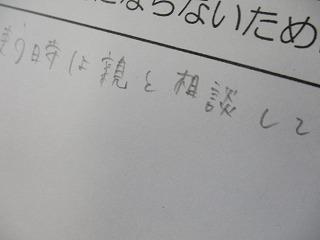 にならないため
う時は親と相談して